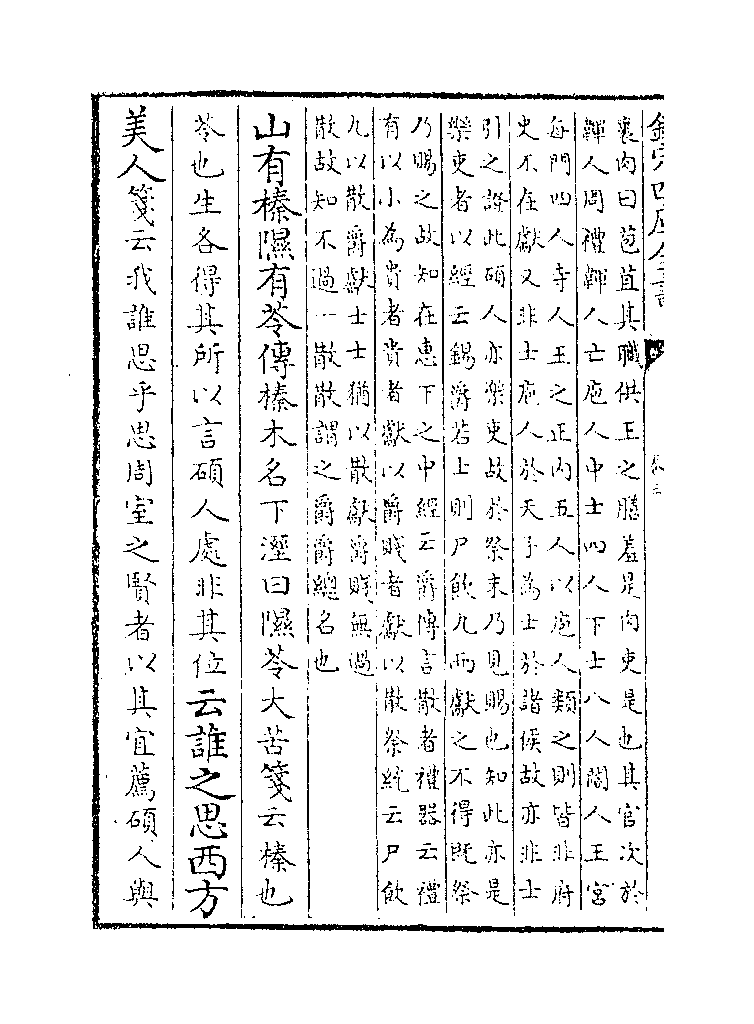 欽定四庫全書
卷三
裹肉曰苞苴其職供王之膳羞是肉吏是也其官次於
韗人周禮韗人亡庖人中士四人下士八人閽人王宮
每門四人寺人王之正內五人以庖人類之則皆非府
史不在獻又非士庖人於天子為士於諸候故亦非士
引之證此碩人亦樂吏故於祭末乃見賜也知此亦是
樂吏者以經云錫爵若士則尸飲九而獻之不得既祭
乃賜之故知在惠下之中經云爵傳言散者禮器云禮
有以小為貴者貴者獻以爵賤者獻以散祭統云尸飲
九以散爵獻士士猶以散獻爵賤無過
散故知不過一散散謂之爵爵總名也
山有榛隰有苓傳榛木名下溼曰隰苓大苦箋云榛也
苓也生各得其所以言碩人處非其位云誰之思西方
美人箋云我誰思乎思周室之賢者以其宜薦碩人與